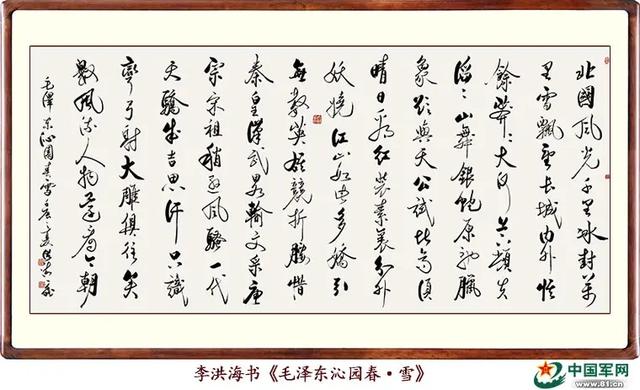 北國風光千里冰封萬
里雪飄望長城内外惟
餘莽〻大河上下頓失
滔〻山舞銀蛇原馳臘
象欲與天公試比高須
晴日看紅裝素裹分外
妖嬈江山如此多嬌引
無數英雄競折腰惜
秦皇漢武略輸文采唐
宗宋祖稍遜風騷一代
天驕成吉思汗只識
彎弓射大雕俱往矣
數風流人物還看今朝
毛澤東沁園春雪
李洪海书《毛泽东沁园春·雪》
中国军网
www.81.cn